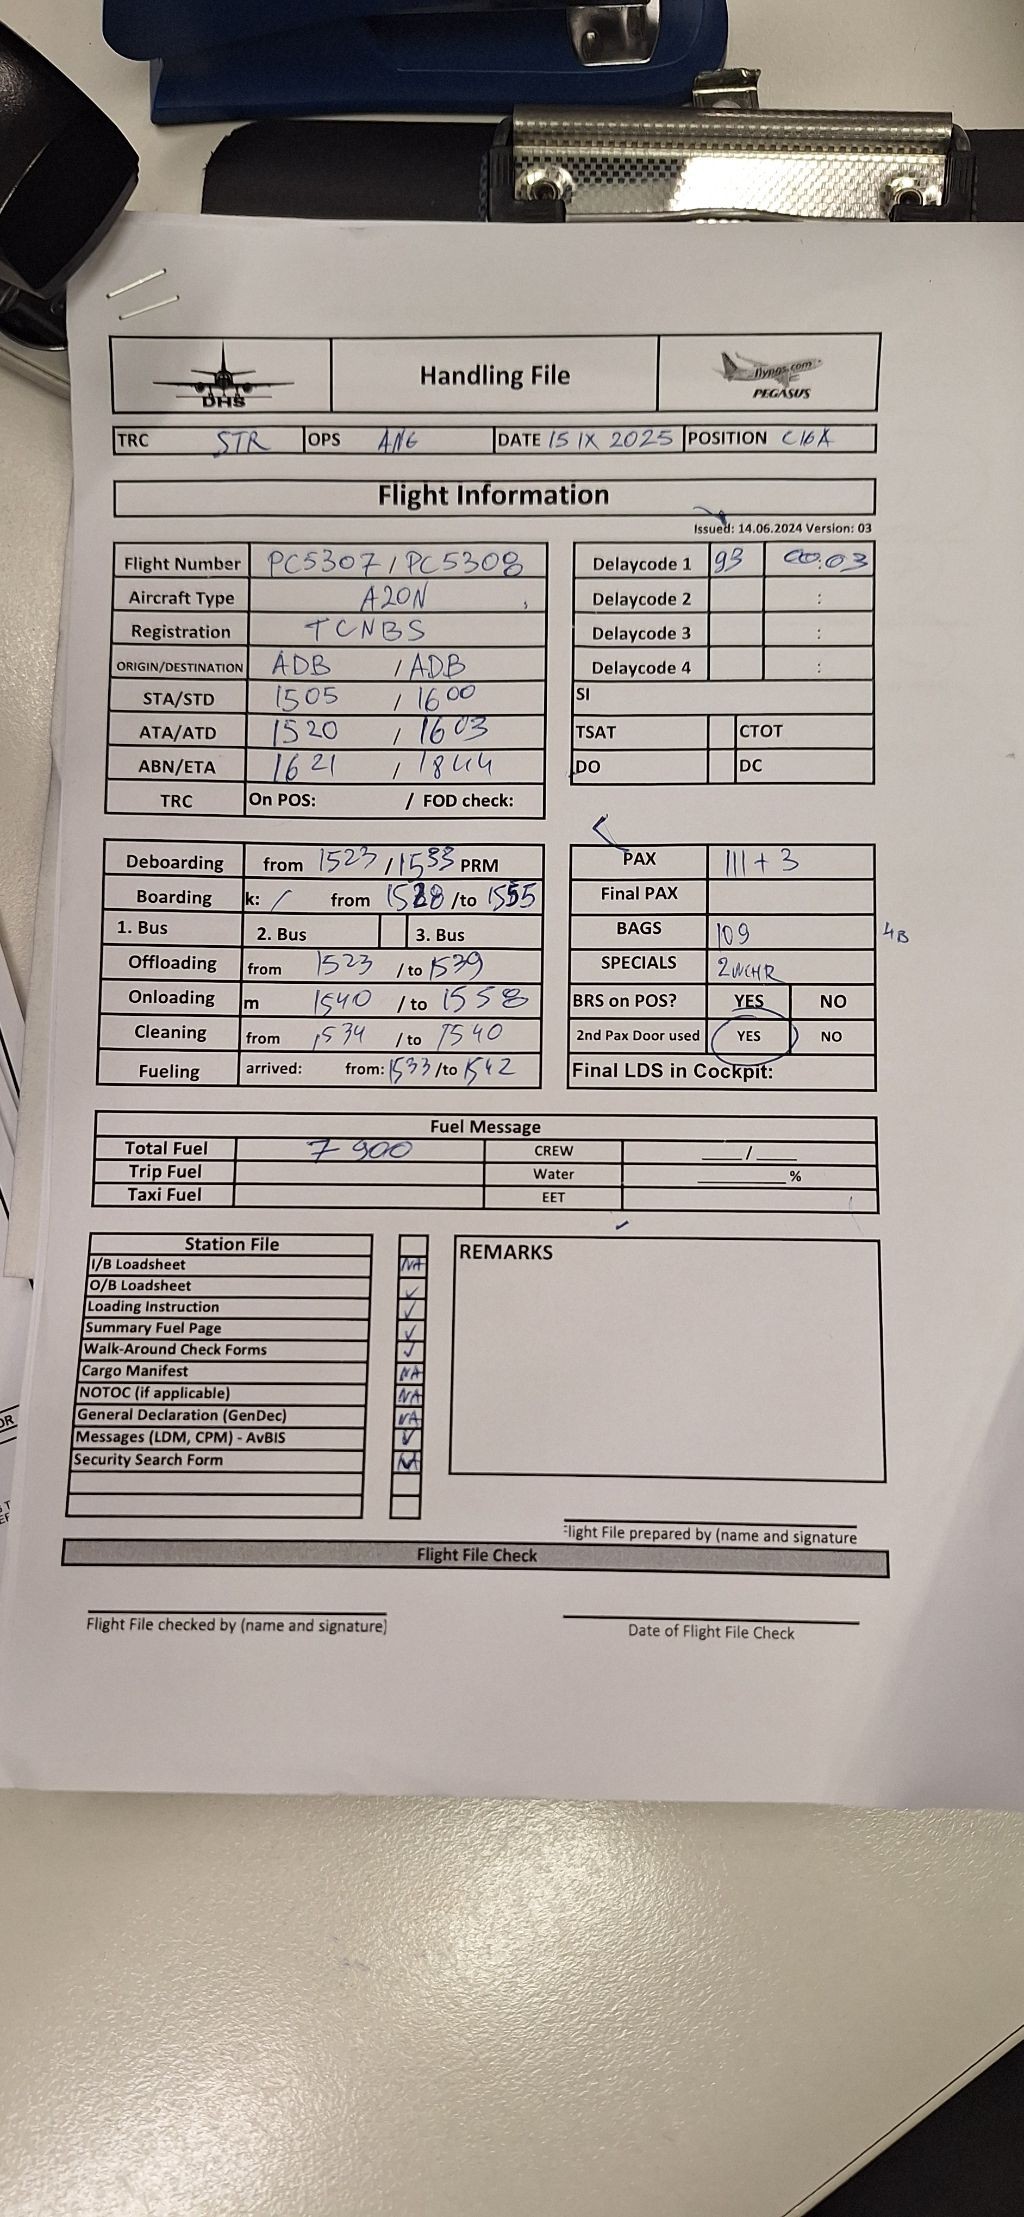 DHS
Handling File
flypgs.com
PEGASUS
TRC STR OPS ANG DATE 15 IX 2025 POSITION C16A
Flight Information
Issued: 14.06.2024 Version: 03
Flight Number PC5307 / PC5308
Aircraft Type A20N
Registration TCNBS
ORIGIN/DESTINATION ADB / ADB
STA/STD 1505 / 1600
ATA/ATD 1520 / 1603
ABN/ETA 1621 / 1844
TRC On POS: / FOD check:
Delaycode 1 93 00:03
Delaycode 2 :
Delaycode 3 :
Delaycode 4 :
SI
TSAT CTOT
DO DC
Deboarding from 1523 / 1533 PRM
Boarding k: / from 1528 /to 1555
1. Bus 2. Bus 3. Bus
Offloading from 1523 / to 1539
Onloading m 1540 / to 1558
Cleaning from 1534 / to 1540
Fueling arrived: from: 1533 /to 1542
PAX 111 + 3
Final PAX
BAGS 109 4B
SPECIALS 2WCHR
BRS on POS? YES NO
2nd Pax Door used YES NO
Final LDS in Cockpit:
Fuel Message
Total Fuel 7 900 CREW ___/___
Trip Fuel Water ________%
Taxi Fuel EET
Station File
I/B Loadsheet NA
O/B Loadsheet ✓
Loading Instruction ✓
Summary Fuel Page ✓
Walk-Around Check Forms ✓
Cargo Manifest NA
NOTOC (if applicable) NA
General Declaration (GenDec) NA
Messages (LDM, CPM) - AvBIS ✓
Security Search Form
REMARKS
Flight File prepared by (name and signature
Flight File Check
Flight File checked by (name and signature)
Date of Flight File Check